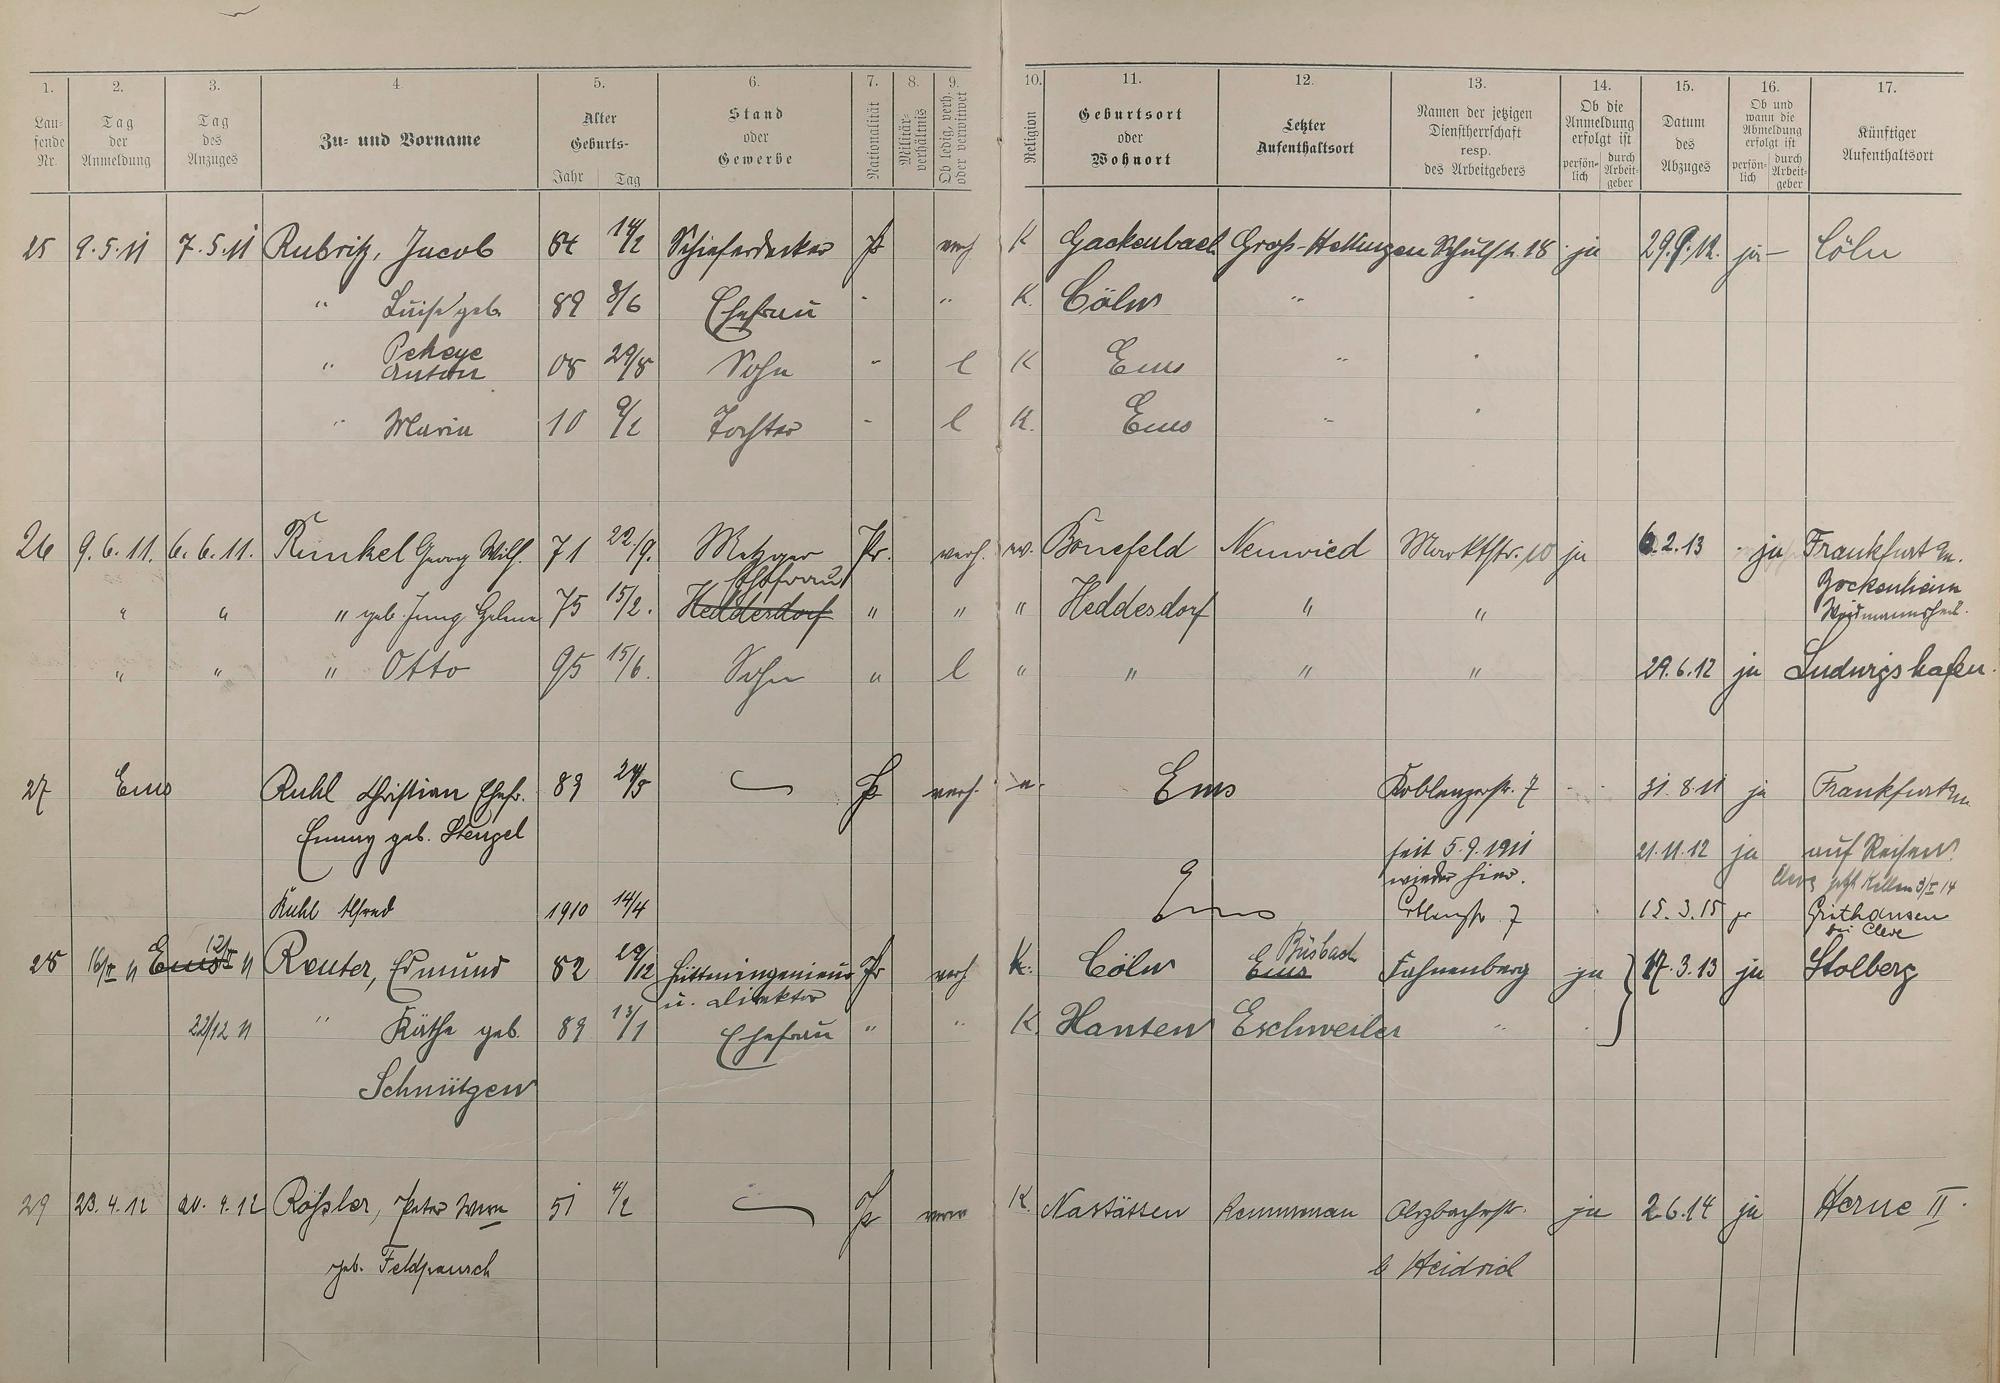 1. 2. 3. 4 5. 6. 7. 8. 9. 10. 11. 12. 13. 14. 15. 16. 17.
Laufende Nr. Tag der Anmeldung Tag des Anzuges Zu- und Vorname Alter Geburts- Jahr Tag Stand oder Gewerbe Nationalität Militärverhältnis Ob ledig, verh. oder verwitwet Religion Geburtsort oder Wohnort Letzter Aufenthaltsort Namen der jetzigen Dienstherrschaft resp. des Arbeitgebers Ob die Anmeldung erfolgt ist persönlich durch Arbeitgeber Datum des Abzuges Ob und wann die Abmeldung erfolgt ist persönlich durch Arbeitgeber Künftiger Aufenthaltsort
25 9.5.11 7.5.11 Rubritz, Jacob 84 14/2 Schieferdecker P verh K Gackenbach Groß-Hettingen Schulstr. 18 ja 29.9.12. ja - Cöln
" Luise geb. 89 3/6 Ehefrau " " K. Cöln " "
Peheye
" Anton 08 29/8 Sohn " l K Ems " "
" Maria 10 9/2 Tochter " l K. Ems " "
26 9.6.11. 6.6.11. Runkel Georg Wilh. 71 22./9. Metzger Pr. verh. ev. Bonefeld Neuwied Marktstr. 10 ja 6.2.13 ja Frankfurt M.
Ehefrau Bockenheim
" " " geb. Jung Helene 75 15/2. Heddesdorf " " " Heddesdorf " " Weidmannstr.
" " " Otto 95 15/6. Sohn " l " " " " 29.6.12 ja Ludwigshafen.
27 Ems Ruhl Christian Ehefr. 83 24/5 P verh. ev. Ems Koblenzerstr. 7 31.8.11 ja Frankfurt M
Emmy geb. Stengel seit 5.9.1911 21.11.12 ja auf Reisen
wieder hier. Cleve jetzt Kellen 3/I 14
Ruhl Alfred 1910 14/4 Ems Coblenzstr 7 15.3.15 ja Griethausen
bei Cleve
28 11 Ems 11 Reuter, Edmund 82 29/12 Hütteningenieur Pr verh K. Cöln Ems Büsbach Fahnenberg ja 17.3.13 ja Stolberg
u. Direktor
22/12 11 " Käthe geb. 89 13/1 Ehefrau " " K. Xanten Eschweiler "
Schnütgen
29 23.4.12 20.4.12 Rößler, Peter Wwe 51 4/2 P verw K. Nastätten Kemmenau Arzbacherstr. ja 2.6.14 ja Herne II.
geb. Feldpausch b Heidrich